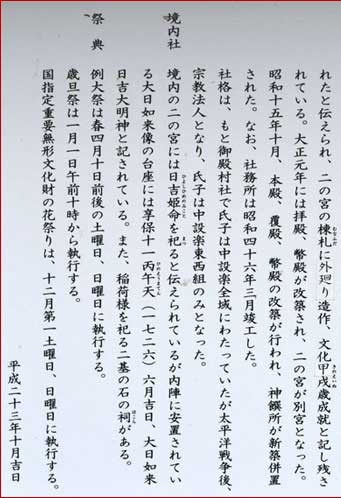 れたと伝えられ、二の宮の棟札に外廻り造作、文化甲戌歳成就と記し残さ
れている。大正元年には拝殿、幣殿が改築され、二の宮が別宮となった。
昭和十五年十月、本殿、覆殿、幣殿の改築が行われ、神饌所が新築併置
された。なお、社務所は昭和四十六年三月竣工した。
社格は、もと御殿村社で氏子は中設楽全域にわたっていたが太平洋戦争後、
宗教法人となり、氏子は中設楽東西組のみとなった。
境内社
境内の二の宮には日吉姫命を祀ると伝えられているが内陣に安置されてい
る大日如来像の台座には享保十一丙午天（一七二六）六月吉日、大日如来
日吉大明神と記されている。また、稲荷様を祀る二基の石の祠がある。
祭典
例大祭は春四月十日前後の土曜日、日曜日に執行する。
歳旦祭は一月一日午前十時から執行する。
国指定重要無形文化財の花祭りは、十二月第一土曜日、日曜日に執行する。
平成二十三年十月吉日